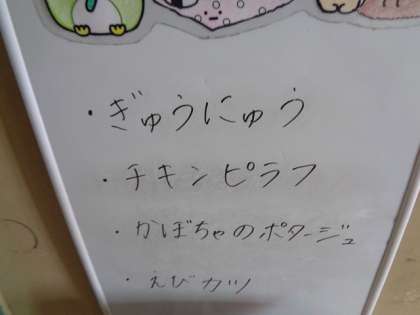 ・ぎゅうにゅう
・チキンピラフ
・かぼちゃのポタージュ
・えびカツ